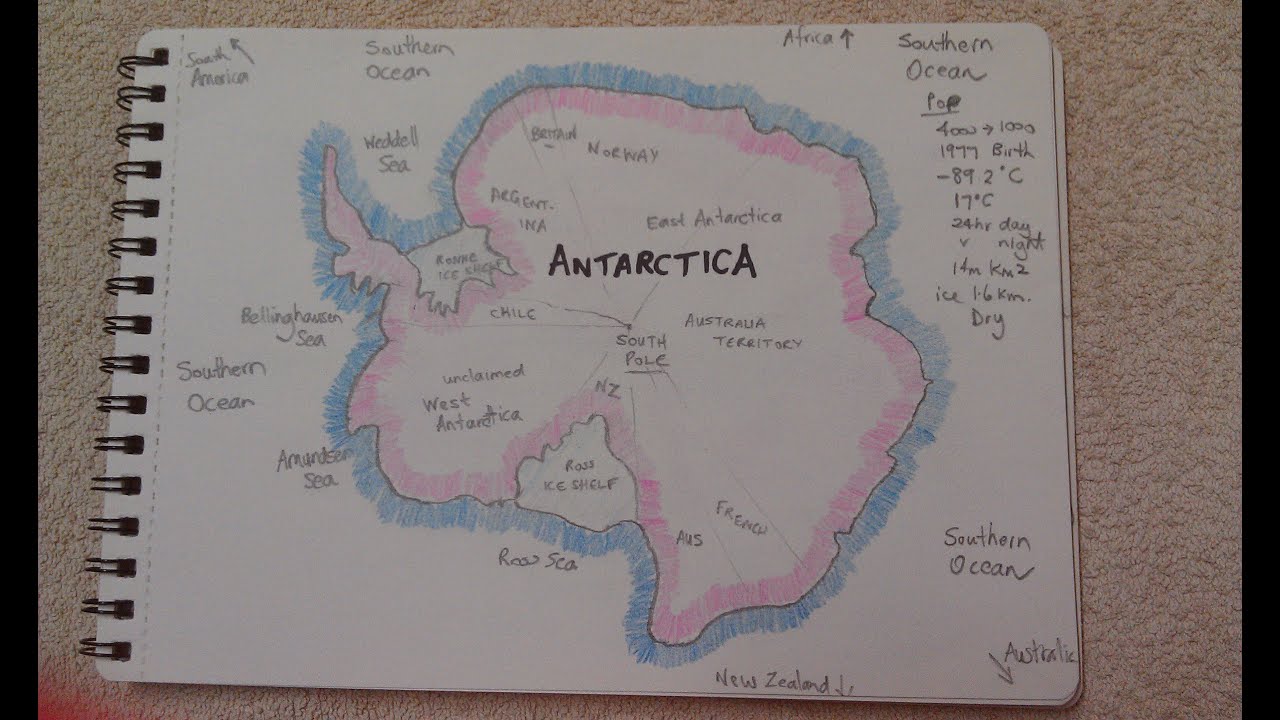 South
America
Southern
Ocean
Africa ↑
Southern
Ocean
Pop
4000 → 1000
1977 Birth
-89.2°C
17°C
24hr day
v night
14m km2
ice 1.6km.
Dry
Weddell
Sea
BRITAIN
NORWAY
ARGENT-
INA
East Antarctica
RONNE
ICE SHELF
ANTARCTICA
Bellinghausen
Sea
CHILE
SOUTH
POLE
AUSTRALIA
TERRITORY
Southern
Ocean
unclaimed
West
Antarctica
NZ
Amundsen
Sea
ROSS
ICE SHELF
AUS
FRENCH
Ross Sea
Southern
Ocean
Australia
New Zealand ↓